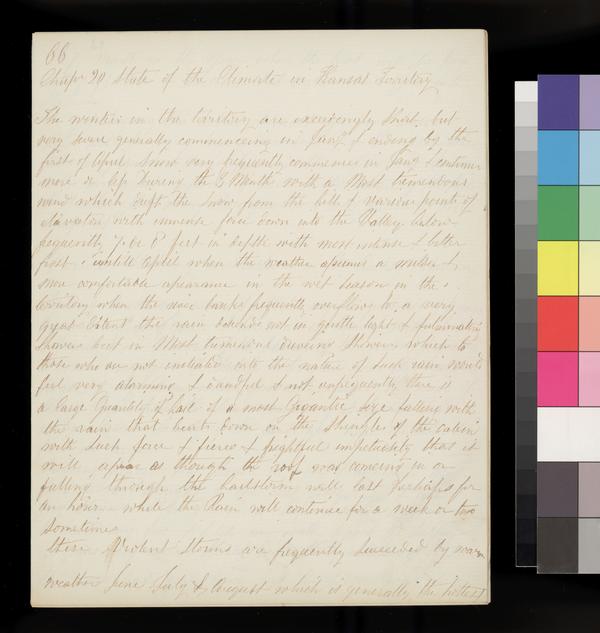 66
Chap 20 State of the Climate in Kansas Territory
The winters in the territory are exceedingly short but
very severe generally commenceing in Jany & ending by the
first of April Snow very frequently commences in Jany & continues
more or less During the 3 Months with a Most tremendous
wind which drift the Snow from the hills & various points of
elevation with immense force down into the Valley below
frequently 7 or 8 feet in depth with most intense & bitter
frost untill April when the weather assumes a milder &
more comfortable apearance in the wet Season in the
territory when the river banks frequently overflows to a very
great Extent the rain desends not in gentle light &
Showers but in Most tremendous Showers which to
those who are not initiated into the nature of Such rain would
feel very alarming & & not unfrequently there is
a large Quantity of hail of a most Gigantic Size falling with
the rain that beats down on the Shingles of the cabin
with Such force & fierce & frightful impetuosity that it
will apear as though the roof was comeing in or
falling through the hailstorm will last perhaps for
an hour while the Rain will continue for a week or two
Sometimes
these Violent Storms are frequently Suceeded by warm
weather June July & August which is generally the hottest